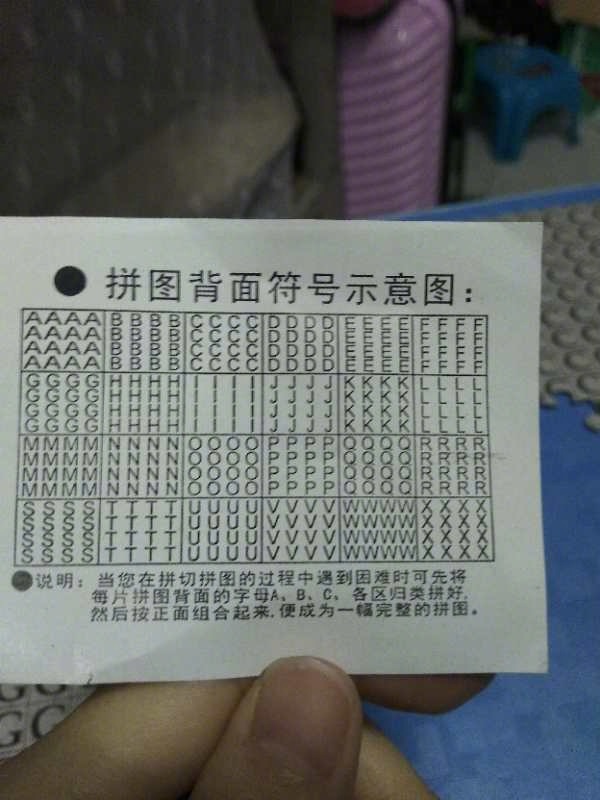 ● 拼图背面符号示意图：
AAAA BBBB CCCC DDDD EEEE FFFF
AAAA BBBB CCCC DDDD EEEE FFFF
AAAA BBBB CCCC DDDD EEEE FFFF
AAAA BBBB CCCC DDDD EEEE FFFF
GGGG HHHH IIII JJJJ KKKK LLLL
GGGG HHHH IIII JJJJ KKKK LLLL
GGGG HHHH IIII JJJJ KKKK LLLL
GGGG HHHH IIII JJJJ KKKK LLLL
MMMM NNNN OOOO PPPP QQQQ RRRR
MMMM NNNN OOOO PPPP QQQQ RRRR
MMMM NNNN OOOO PPPP QQQQ RRRR
MMMM NNNN OOOO PPPP QQQQ RRRR
SSSS TTTT UUUU VVVV WWWW XXXX
SSSS TTTT UUUU VVVV WWWW XXXX
SSSS TTTT UUUU VVVV WWWW XXXX
SSSS TTTT UUUU VVVV WWWW XXXX
●说明：当您在拼切拼图的过程中遇到困难时可先将
每片拼图背面的字母A、B、C，各区归类拼好，
然后按正面组合起来，便成为一幅完整的拼图。